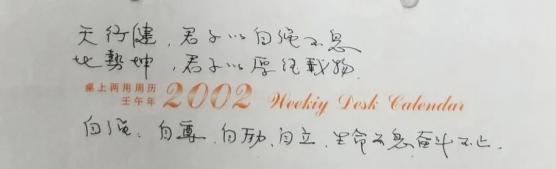 天行健，君子以自强不息
地势坤，君子以厚德载物.
桌上两用周历
壬午年
2002 Weekiy Desk Calendar
自强、自尊、自励、自立、生命不息奋斗不止.